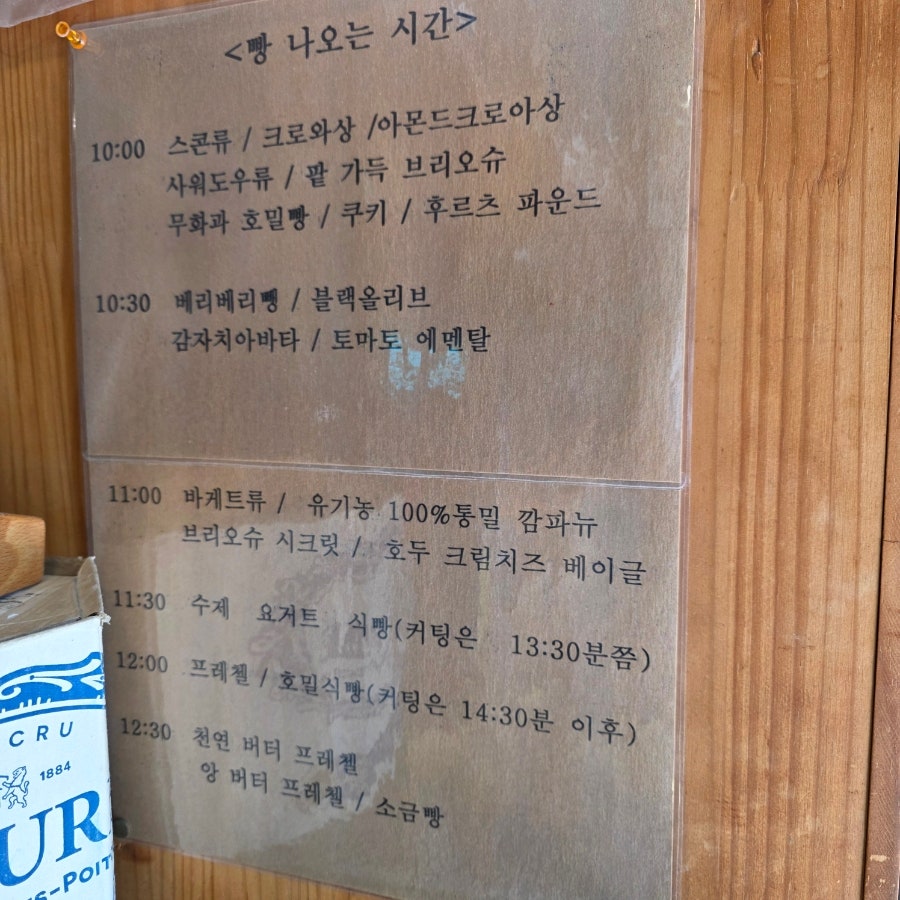 <빵 나오는 시간>
10:00 스콘류 / 크로와상 /아몬드크로아상
사워도우류 / 팥 가득 브리오슈
무화과 호밀빵 / 쿠키 / 후르츠 파운드
10:30 베리베리뺑 / 블랙올리브
감자치아바타 / 토마토 에멘탈
11:00 바게트류 / 유기농 100%통밀 깜파뉴
브리오슈 시크릿 / 호두 크림치즈 베이글
11:30 수제 요거트 식빵(커팅은 13:30분쯤)
12:00 프레첼 / 호밀식빵(커팅은 14:30분 이후)
12:30 천연 버터 프레첼
앙 버터 프레첼 / 소금빵
CRU
1884